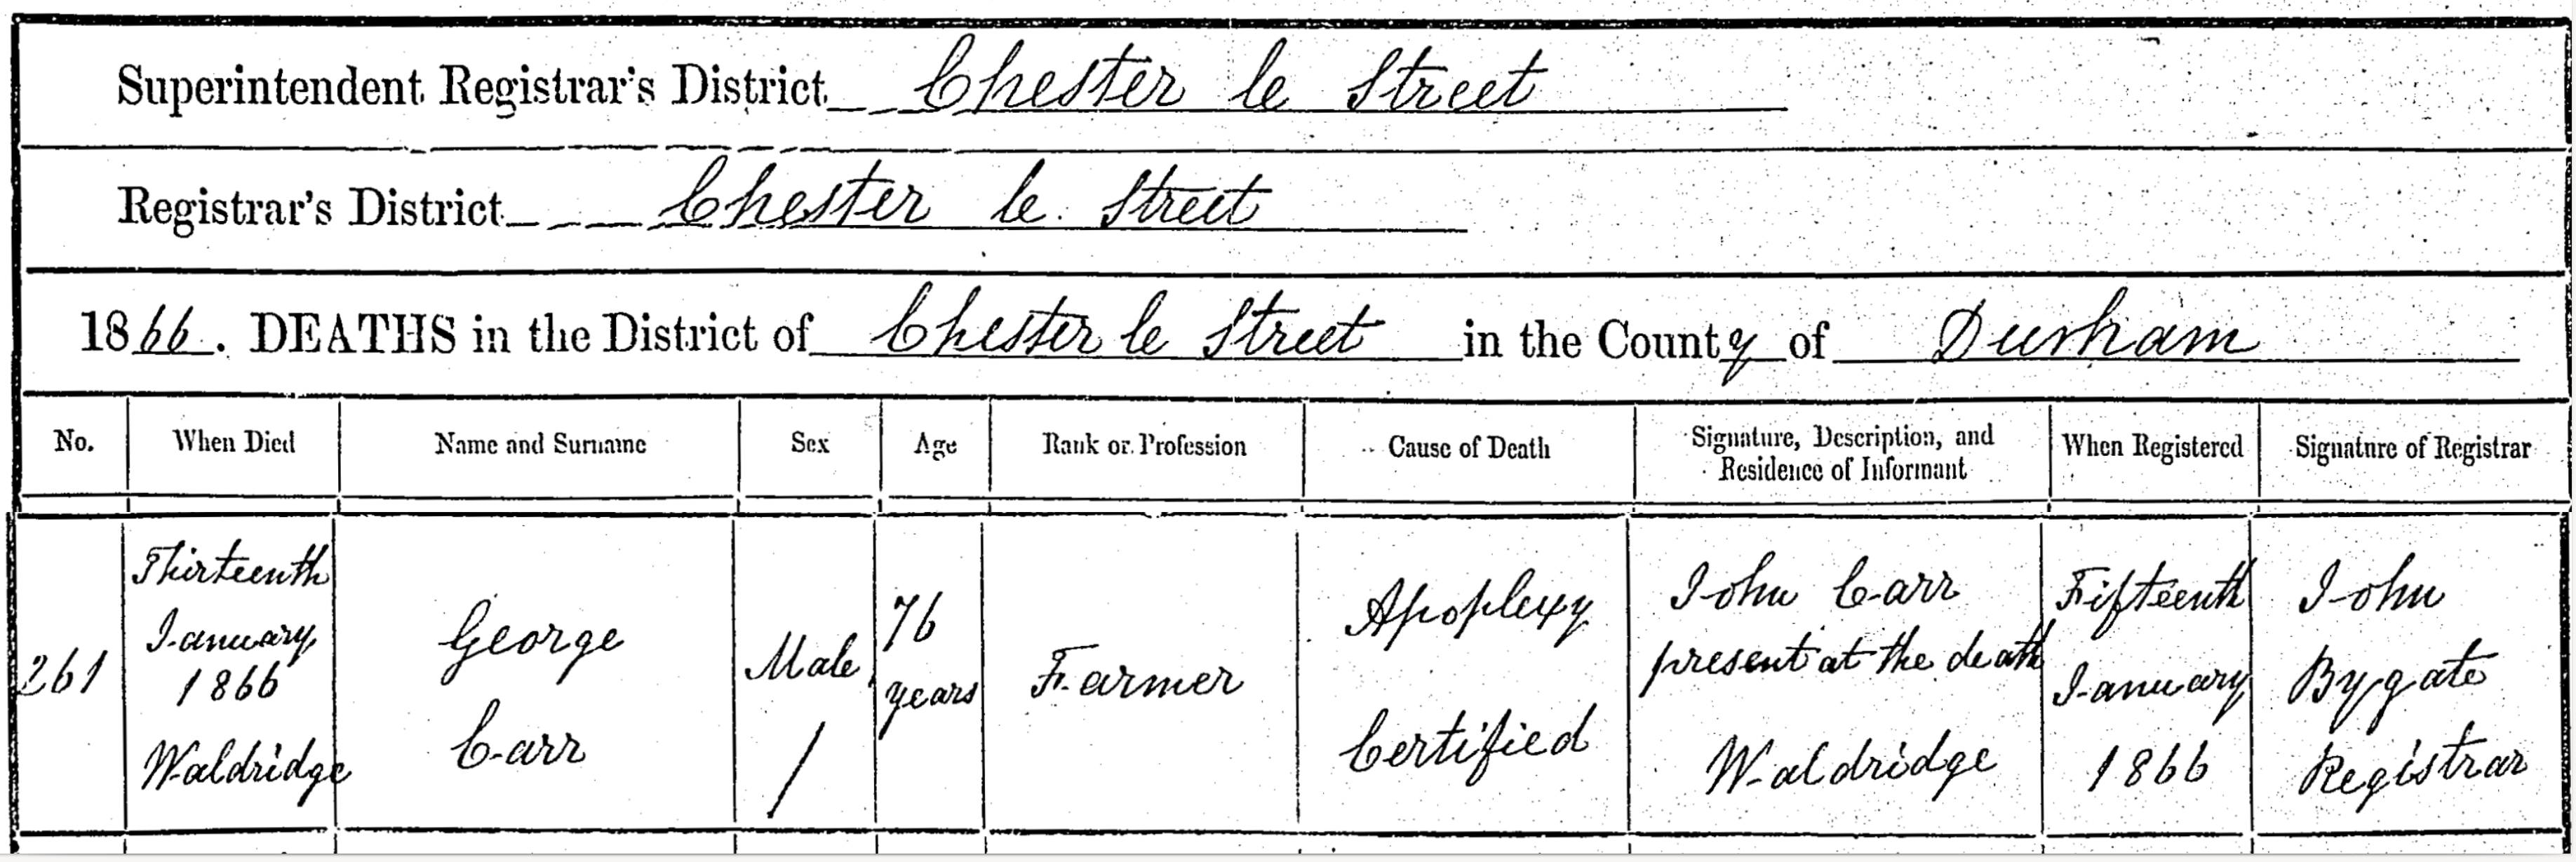 Superintendent Registrar's District Chester le Street
Registrar's District Chester le Street
1866. DEATHS in the District of Chester le Street in the County of Durham
No.
When Died
Name and Surname
Sex
Age
Rank or Profession
Cause of Death
Signature, Description, and
Residence of Informant
When Registered
Signature of Registrar
261
Thirteenth
January
1866
Waldridge
George
Carr
Male
76
years
Farmer
Apoplexy
Certified
John Carr
present at the death
Waldridge
Fifteenth
January
1866
John
Bygate
Registrar